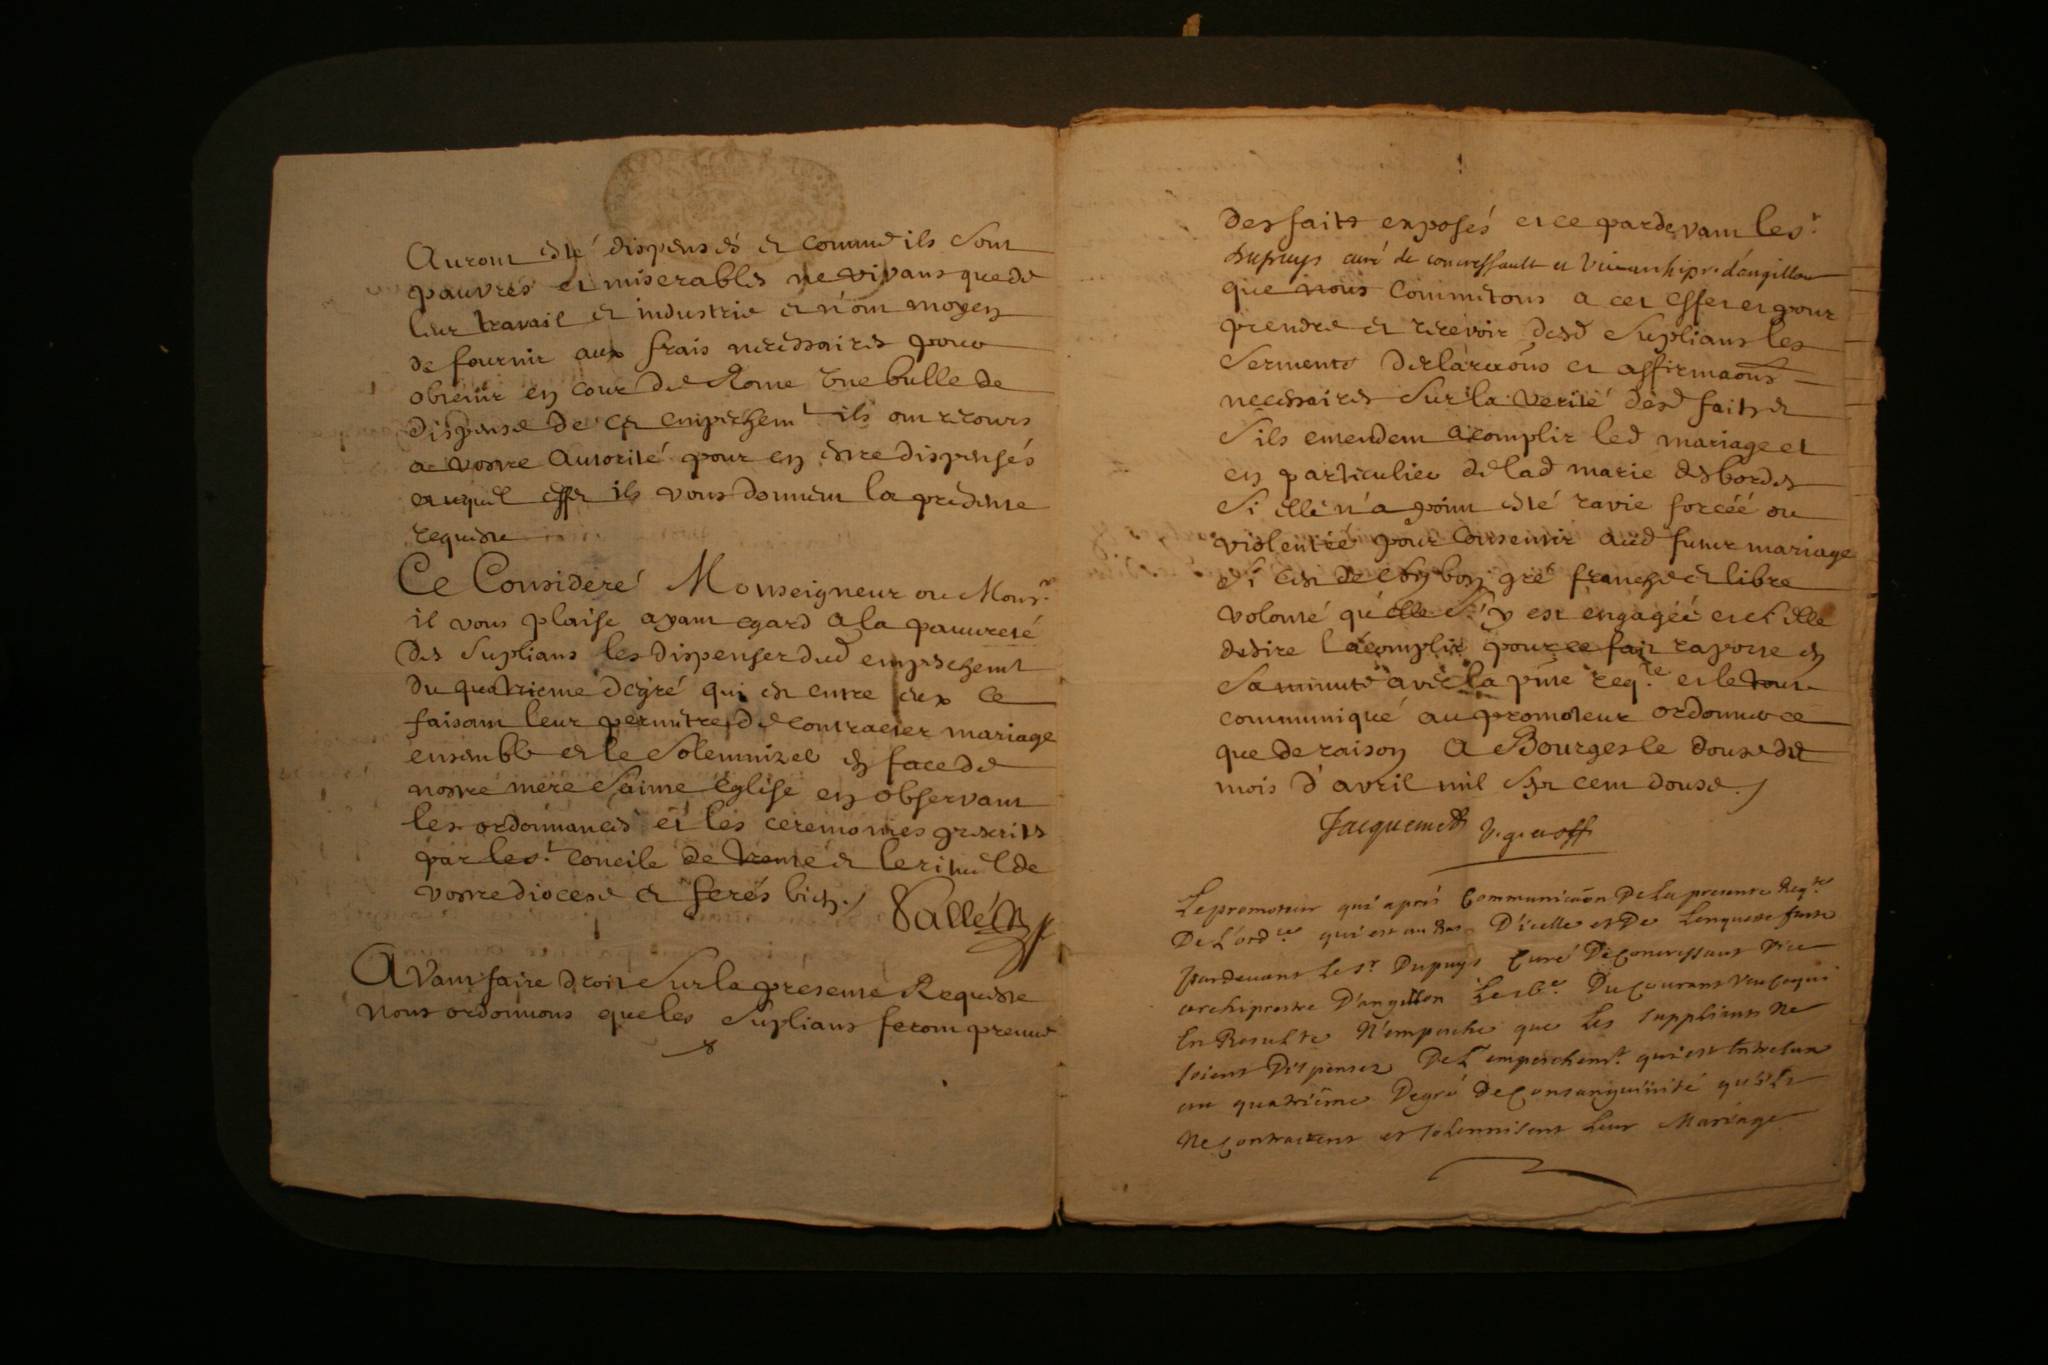 Auront esté dispensés et comme ils sont
pauvres et miserables ne vivans que de
leur travail et industrie et n'ont moyen
de fournir aux frais necessaires pour
obtenir en cour de Rome une bulle de
dispense de cet empeschemt ils ont recours
a vostre autorité pour en estre dispensés
auquel effet ils vous donnent la presente
requeste
Ce Consideré Monseigneur ou Monsr
il vous plaise ayant egard a la pauvreté
des suplians les dispenser dud empeschemt
du quatrieme degré qui est entre eux ce
faisant leur permettre de contracter mariage
ensemble et le solemnizer en face de
nostre mere sainte Eglise en observant
les ordonnances et les ceremonies prescrits
par le st concile de trente et le rituel de
vostre diocese et ferés bien
Vallée
Avant faire droit sur la presente Requeste
nous ordonnons que les suplians feront preuve
des faits exposés et ce pardevant le sr
Dupuys curé de concressault et vice archipr. d'angillon
que nous commetons a cet effet et pour
prendre et recevoir desd suplians les
serments declaraons et affirmaons
necessaires sur la verité desd faits et
s'ils entendent acomplir led mariage et
en particulier de lad marie desbordes
si elle n'a point esté ravie forcéé ou
violentée pour consentir aud futur mariage
si c'est de son bon gré franche et libre
volonté qu'elle s'y est engagée et si elle
desire l'acomplir pour ce fait raporté en
sa minute avec la pnte reqte et le tout
communiqué au promoteur ordonner ce
que de raison A Bourges le douse du
mois d'avril mil sept cent douse
Jacquemet v. g. et off
Le promoteur qui a pris Communicaon De La presente Reqte
De L'ordce qui est au bas D'icelle et De L'enqueste faite
pardevant Le Sr Dupuys Curé De Concressaut vice
archiprestre D'angillon Le Du Courant veu ce qui
En Resulte N'empesche que Les suppliants Ne
soient Dispensez De L'empeschemt qui est Entre eux
au quatriéme Degré de Consanguinité qu'ils
Ne Contractent et solennisent Leur Mariage